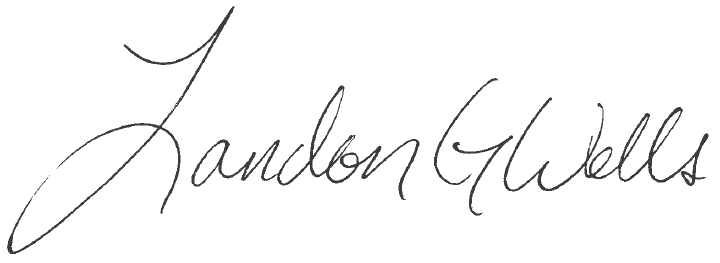 Landon G Wells